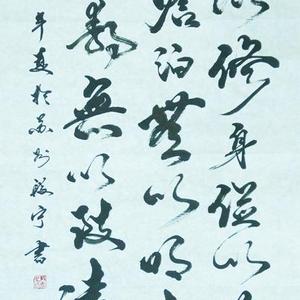 以修身儉以
澹泊無以明
静無以致遠
年夏於苏州宁書